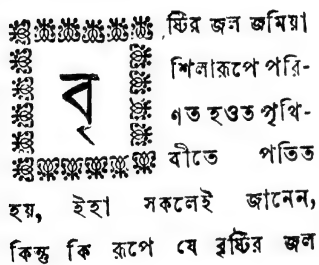 বৃ
ষ্টির জল জমিয়া
শিলারূপে পরি-
ণত হওত পৃথি-
বীতে পতিত
হয়, ইহা সকলেই জানেন,
কিন্তু কি রূপে যে বৃষ্টির জল